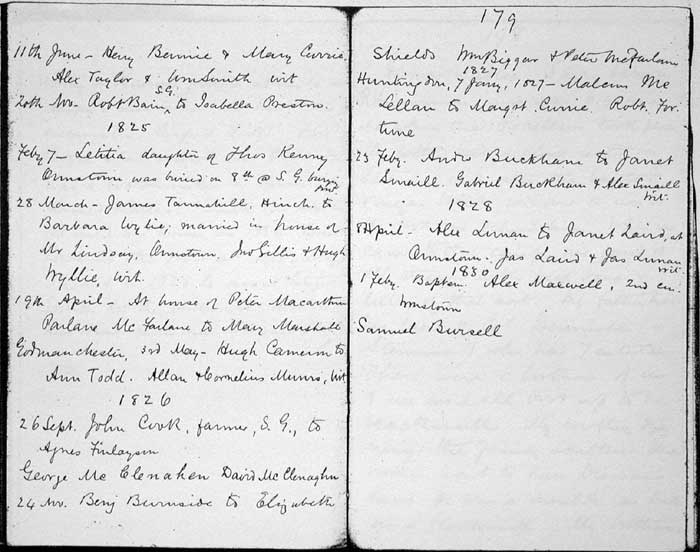 11th June - Heny Bennie & Mary Currie,
Alex Taylor & Wm Smith wit
20th Nov. - Robt Bain, S.G. to Isabella Preston.
1825
Feby 7 - Letitia daughter of Thos Kenny
Ormstown was buried on 8th @ S. G. burying
28 March - James Tannahill, Hinch. to
Barbara Wylie; married in house of
Mr Lindsay, Ormstown, Jno Gillis & Hugh
Wyllie, Wit.
19th April - At house of Peter Macarthur
Parlane McFarlane to Mary Marshall
Godmanchester, 3rd May - Hugh Cameron to
Ann Todd. Allan & Cornelius Munro, Wit
1826
26 Sept. John Cook, farmer, S. G., to
Agnes Finlayson
George McClenahen David McClenaghn
24 Nov. Benj Burnside to Elizabeth
179
Shields Wm Biggar & Peter McFarlane
1827
Huntingdon, 7 Jany, 1827 - Malcum Mc
Lellan to Margt. Currie. Robt. For-
tune
23 Feby. Andro Buckham to Janet
Smaill. Gabriel Buckham & Alex Smaill
Wit.
1828
8 April - Alex Luman to Janet Laird, at
Ormstown. Jas Laird & Jas Luman
Wit.
1830
1 Feby. Baptsm. Alex Maxwell, 2nd con.
Wmstown
Samuel Bursell